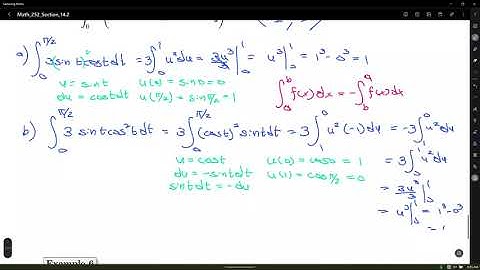 Math_252_Section_14.2
a) ∫₀^{π/2} 3 sin²t cost dt = 3∫₀¹ u² du = 3u³/3 |₀¹ = u³ |₀¹ = 1³ - 0³ = 1
u = sint u(0) = sin0 = 0
du = costdt u(π/2) = sin π/2 = 1
∫ₐᵇ f(x)dx = -∫ᵇᵃ f(x)dx
b) ∫₀^{π/2} 3 sintcos²tdt = 3∫₀^{π/2} (cost)² sintdt = 3∫₁⁰ u² (-1)du = -3∫₁⁰ u² du
u = cost u(0) = cos0 = 1
du = -sintdt u(1) = cos π/2 = 0
sintdt = -du
= 3∫₀¹ u² du
= 3u³/3 |₀¹
= u³ |₀¹ = 1³ - 0³
= 1
Example 6